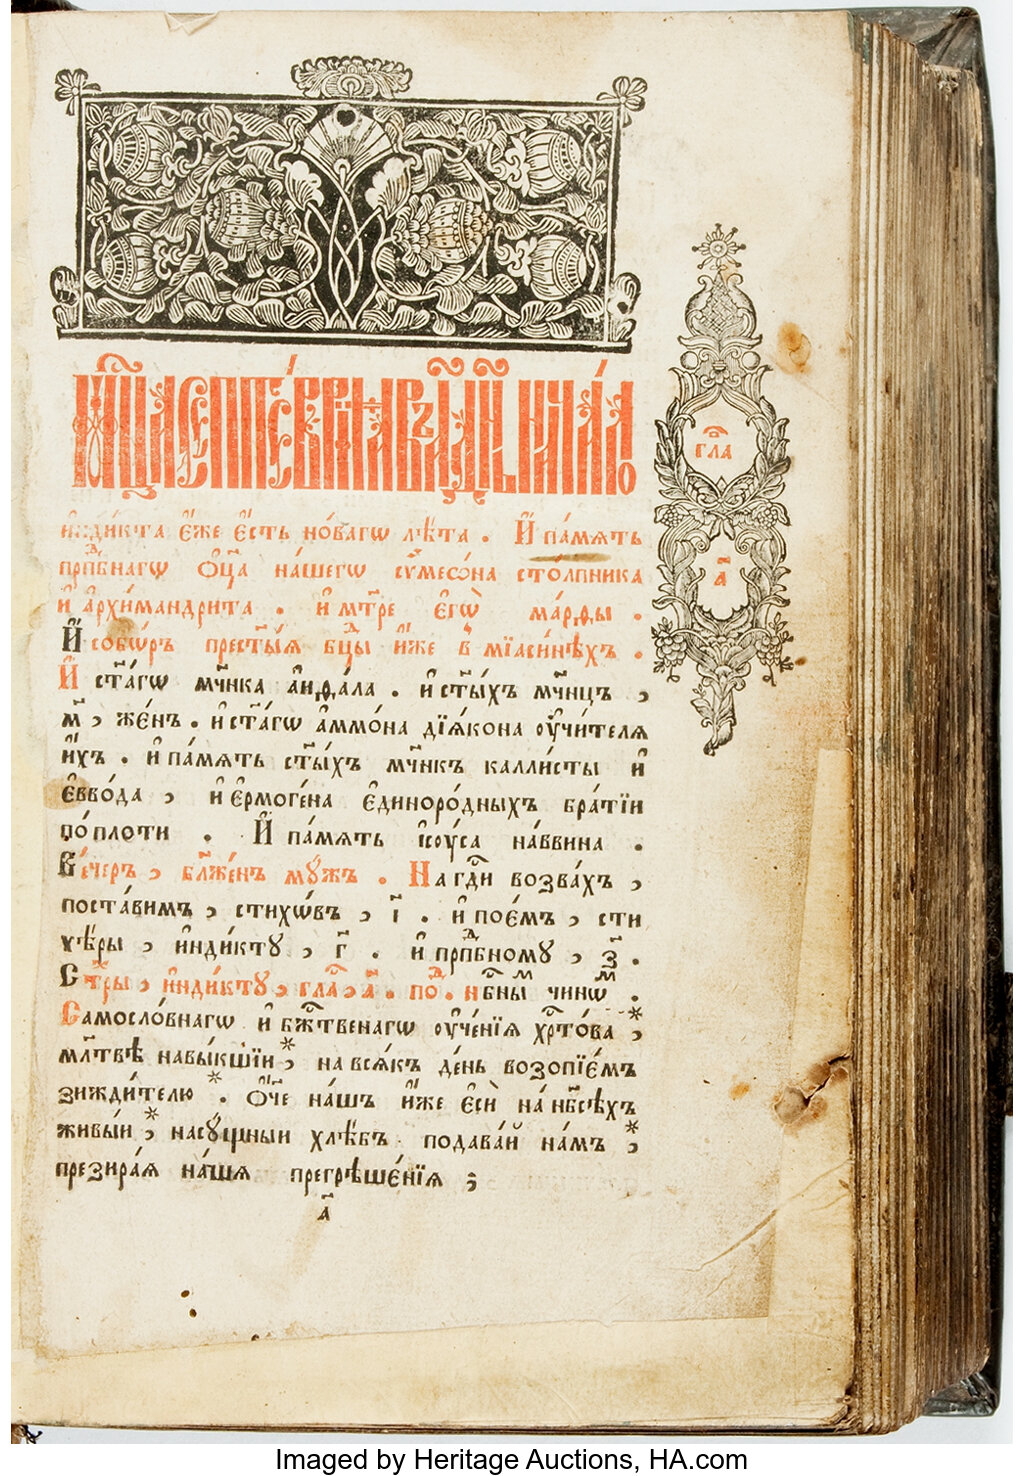 мц҃а септе́вріа въ а҃ дн҃ь начало
и҆нди́кта є҆́же є҆́сть но́вагѡ лѣ́та . И҆ па́мѧть
прпⷣбнагѡ ѻ҆ц҃а на́шегѡ сѷмеѡ́на сто́лпника
и҆ а҆рхїмандри́та . и҆ мт҃ре є҆гѡ̀ ма́рѳы .
И҆ собо́ръ прест҃ы́ѧ бцⷣы и҆́же в̾ мїаси́нѣхъ .
И҆ ст҃а́гѡ мч҃нка а҆иѳа́ла . и҆ ст҃ы́хъ мч҃нцъ ,
м҃ , же́нъ . и҆ ст҃а́гѡ а҆ммо́на дїѧ́кона ѹ҆чи́телѧ
и҆́хъ . и҆ па́мѧть ст҃ы́хъ мч҃нкъ калли́сты и҆
є҆вво́да , и҆ є҆рмоге́на є҆диноро́дныхъ бра́тїи
по́ плоти . И҆ па́мѧть і҆сѹ́са на́ввина .
Ве́черъ , бл҃же́нъ мꙋ́жъ . На гдⷭ҇и возва́хъ ,
поста́вимъ , стихѡ́въ , і҃ . и҆ пое́мъ , сти
хѣ́ры , и҆нди́ктꙋ , г҃ . и҆ прпⷣбномꙋ , з҃ .
Стⷯры , и҆нди́ктꙋ , глаⷭ , а҃ . поⷣ . нбⷭ҇ныⷨ чинѡⷨ .
Самосло́внагѡ и҆ бжⷭ҇твенагѡ ѹ҆че́нїѧ хрⷭ҇то́ва * ,
мл҃твѣ навы́кшїи * , на всѧ́къ де́нь возопїе́мъ
зижди́телю * . ѻ҆́ч҃е на́шъ и҆́же є҆сѝ на́ нб҃сѣхъ
живы́и * , насꙋ́щныи хлѣ́бъ подава́й на́мъ * ,
презира́ѧ на́шѧ прегрѣше́нїѧ ;
а҃
гла
а҃
Imaged by Heritage Auctions, HA.com